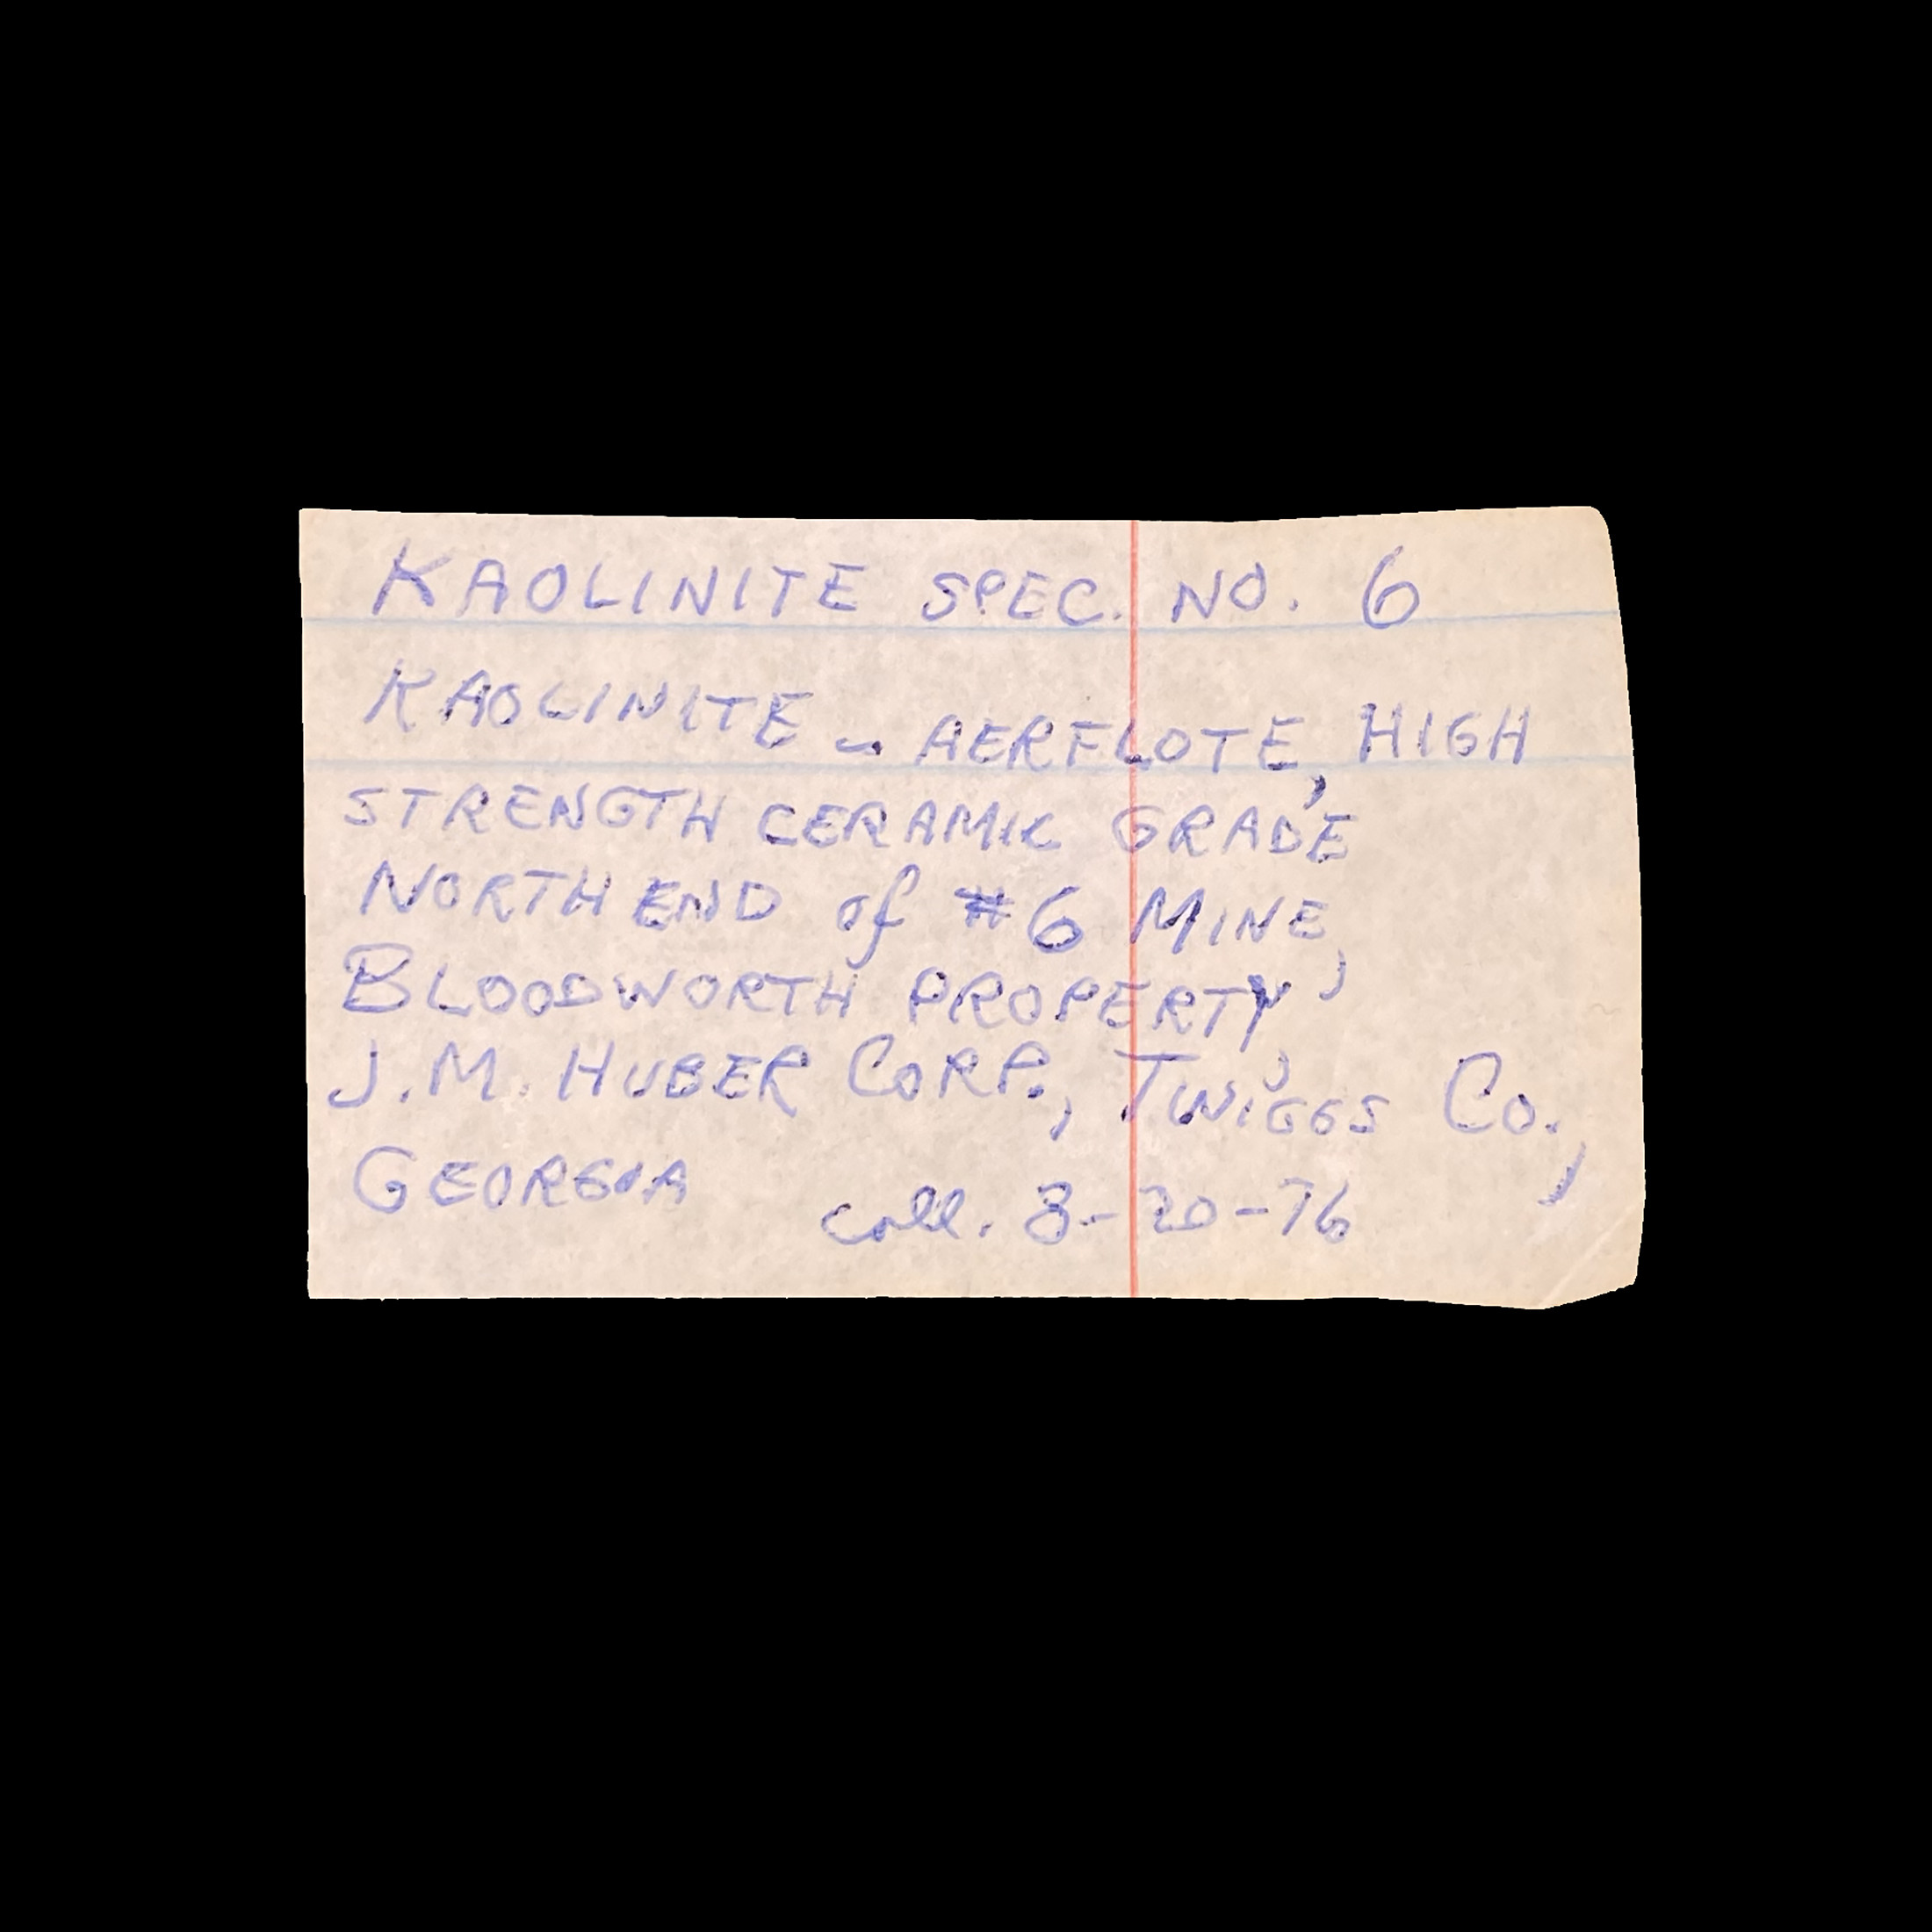 KAOLINITE SPEC. NO. 6
KAOLINITE - AERFLOTE, HIGH
STRENGTH CERAMIC GRADE
NORTH END of #6 MINE,
BLOODWORTH PROPERTY,
J.M. HUBER CORP., TWIGGS CO.,
GEORGIA coll. 8-20-76